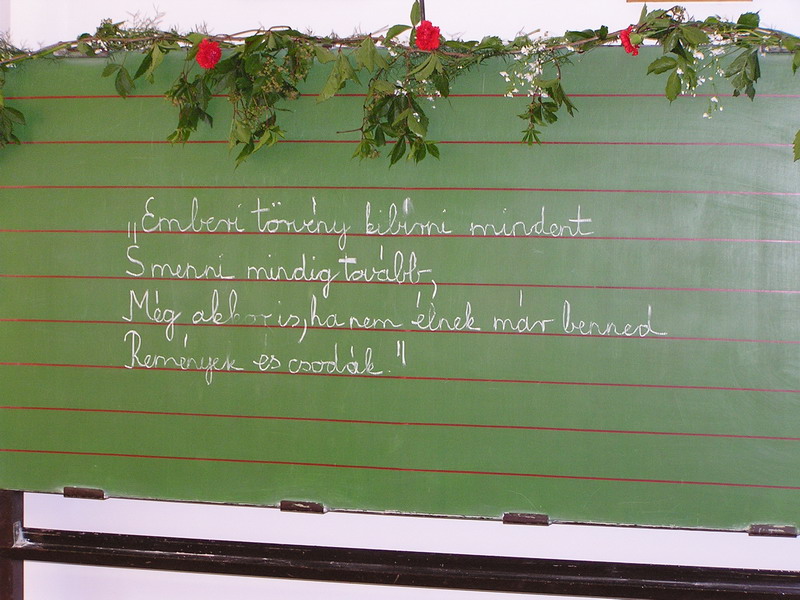 „Emberi törvény kibírni mindent
S menni mindig tovább,
Még akkor is, ha nem élnek már benned
Remények es csodák."